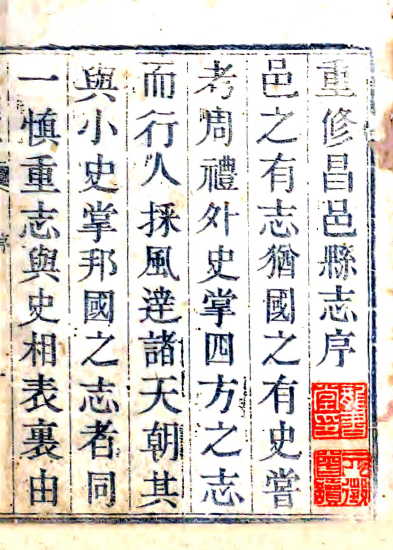 重修昌邑縣志序
邑之有志猶國之有史嘗
考周禮外史掌四方之志
而行人採風達諸天朝其
與小史掌邦國之志者同
一慎重志與史相表裏由